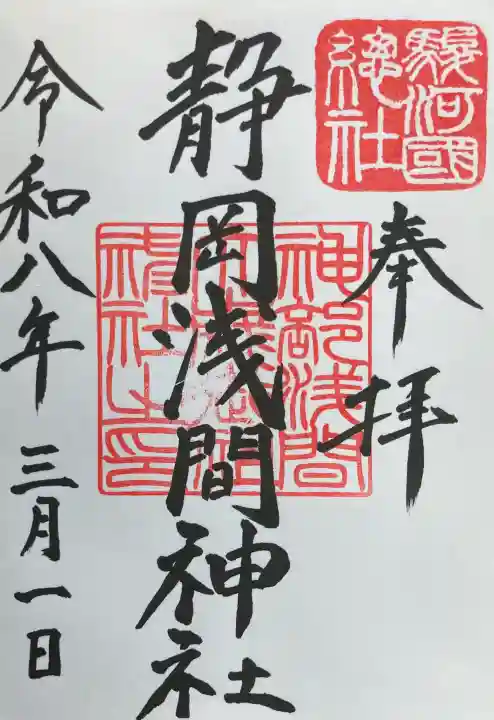 駿河國
總社
奉拝
静岡浅間神社
神部浅間
神社之印
令和八年 三月一日